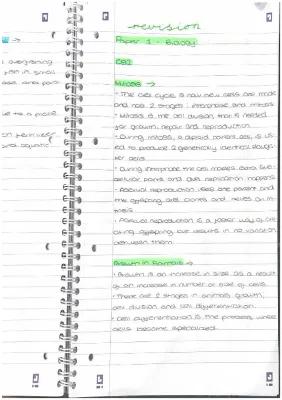 revision
Paper 1 - Biology
CB2
Mitosis →
• The cell cycle is how new cells are made
and has 2 stages: interphase and mitosis
• Mitosis is the cell division that is needed
for growth, repair and reproduction
• During mitosis, a diploid parent cell is us
ed to produce 2 genetically identical daugh
ter cells
• During interphase the cell makes extra sub
cellular parts and DNA replication happens
• Asexual reproduction uses one parent and
the offspring are clones and relies on mi
tosis
• Asexual reproduction is a faster way of cre
ating offspring but results in no variation
between them
Growth in Animals →
• Growth is an increase in size as a result
of an increase in number or size of cells.
• There are 2 stages in animals growth,
cell division and cell differentiation
• Cell differentiation is the process where
cells become specialised